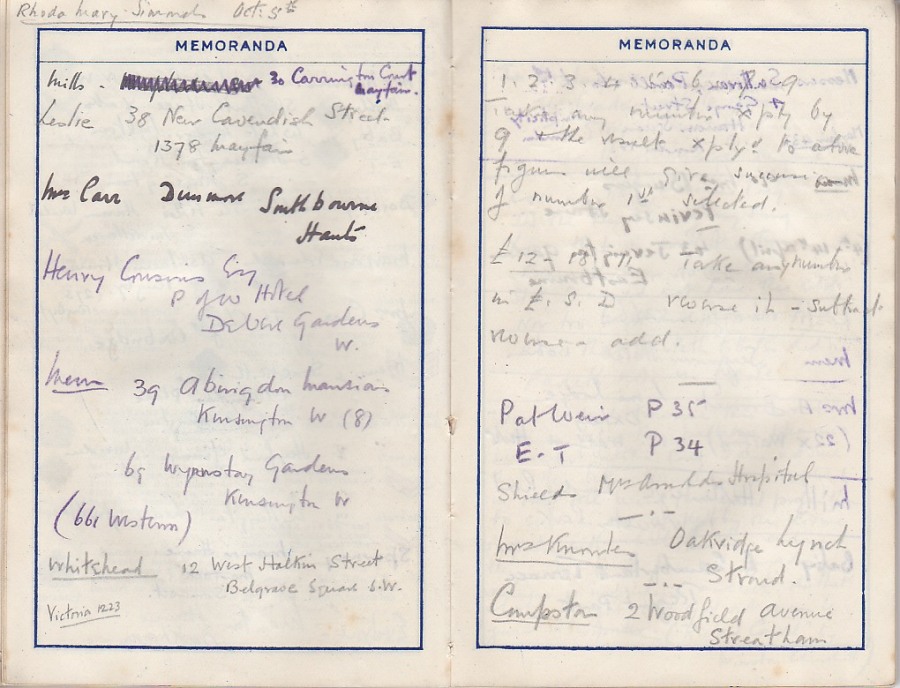 Rhoda Mary Simmonds Oct. 5th
MEMORANDA
Mills. 30 Carrington Court
Mayfair.
Leslie 38 New Cavendish Street
1378 Mayfair
Mrs Carr Dunmore Southbourne
Hants
Henry Esq
P of W Hotel
De Vere Gardens
W.
Mem 39 Abingdon Mansions
Kensington W (8)
69 Wynnstay Gardens
Kensington W
(661 Western)
Whitehead 12 West Halkin Street
Belgrave Square S.W.
Victoria 1223
MEMORANDA
1. 2. 3 4 6 9
any number xply by
9 & the result xplyd to above
figures will give
of number 1st selected.
£12-18-11. Take any number
in £. S. D reverse it - subtract
reverse & add.
Pat Weir P 35
E. T P 34
Shields Mrs Arnolds Hospital
Mrs Knowles Oakridge Lynch
Stroud.
Compston 2 Woodfield Avenue
Streatham